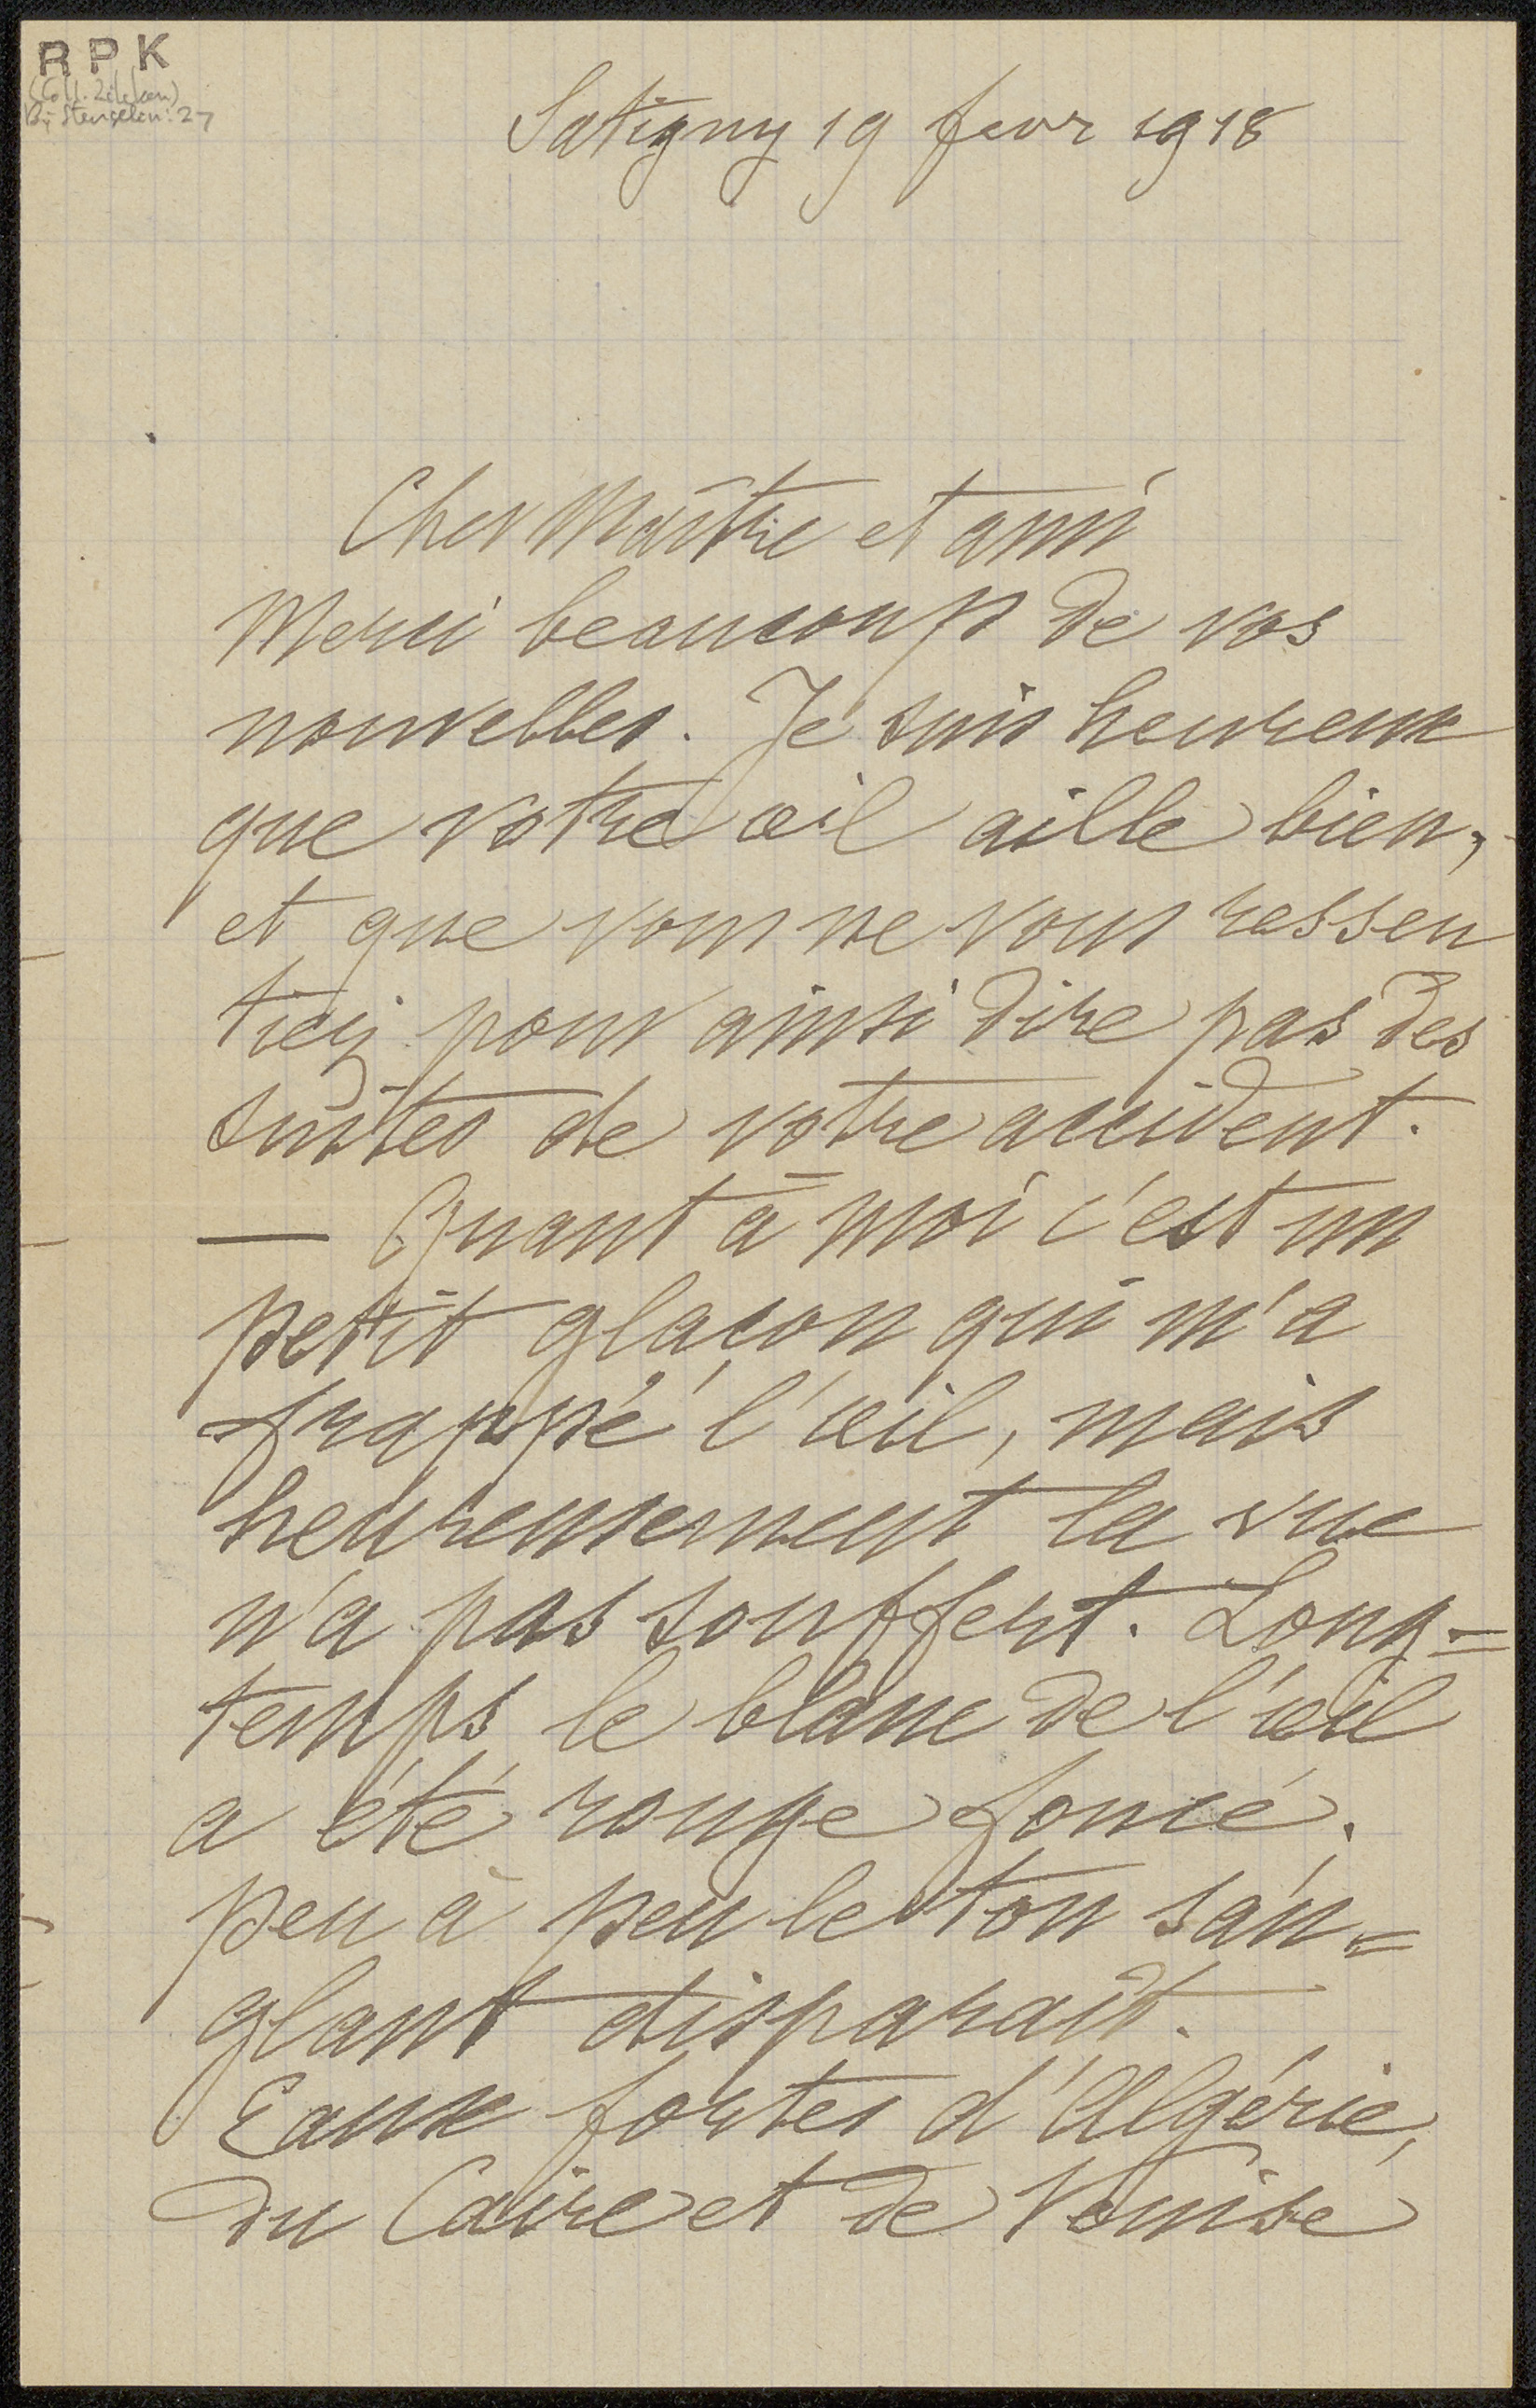 R P K
(Coll. Zilcken)
Bij Stengelin: 27
Satigny 19 fevr 1918
Cher Maître et ami
Merci beaucoup de vos
nouvelles. Je suis heureux
que votre œil aille bien,
et que vous ne vous ressen
tiez pour ainsi dire pas des
suites de votre accident.
— Quant à moi c'est un
petit glaçon qui m'a
frappé l'œil, mais
heureusement la vue
n'a pas souffert. Long=
temps le blanc de l'œil
a été rouge foncé.
peu à peu le ton san=
glant disparait.
Eaux fortes d'Algérie,
du Caire et de Venise